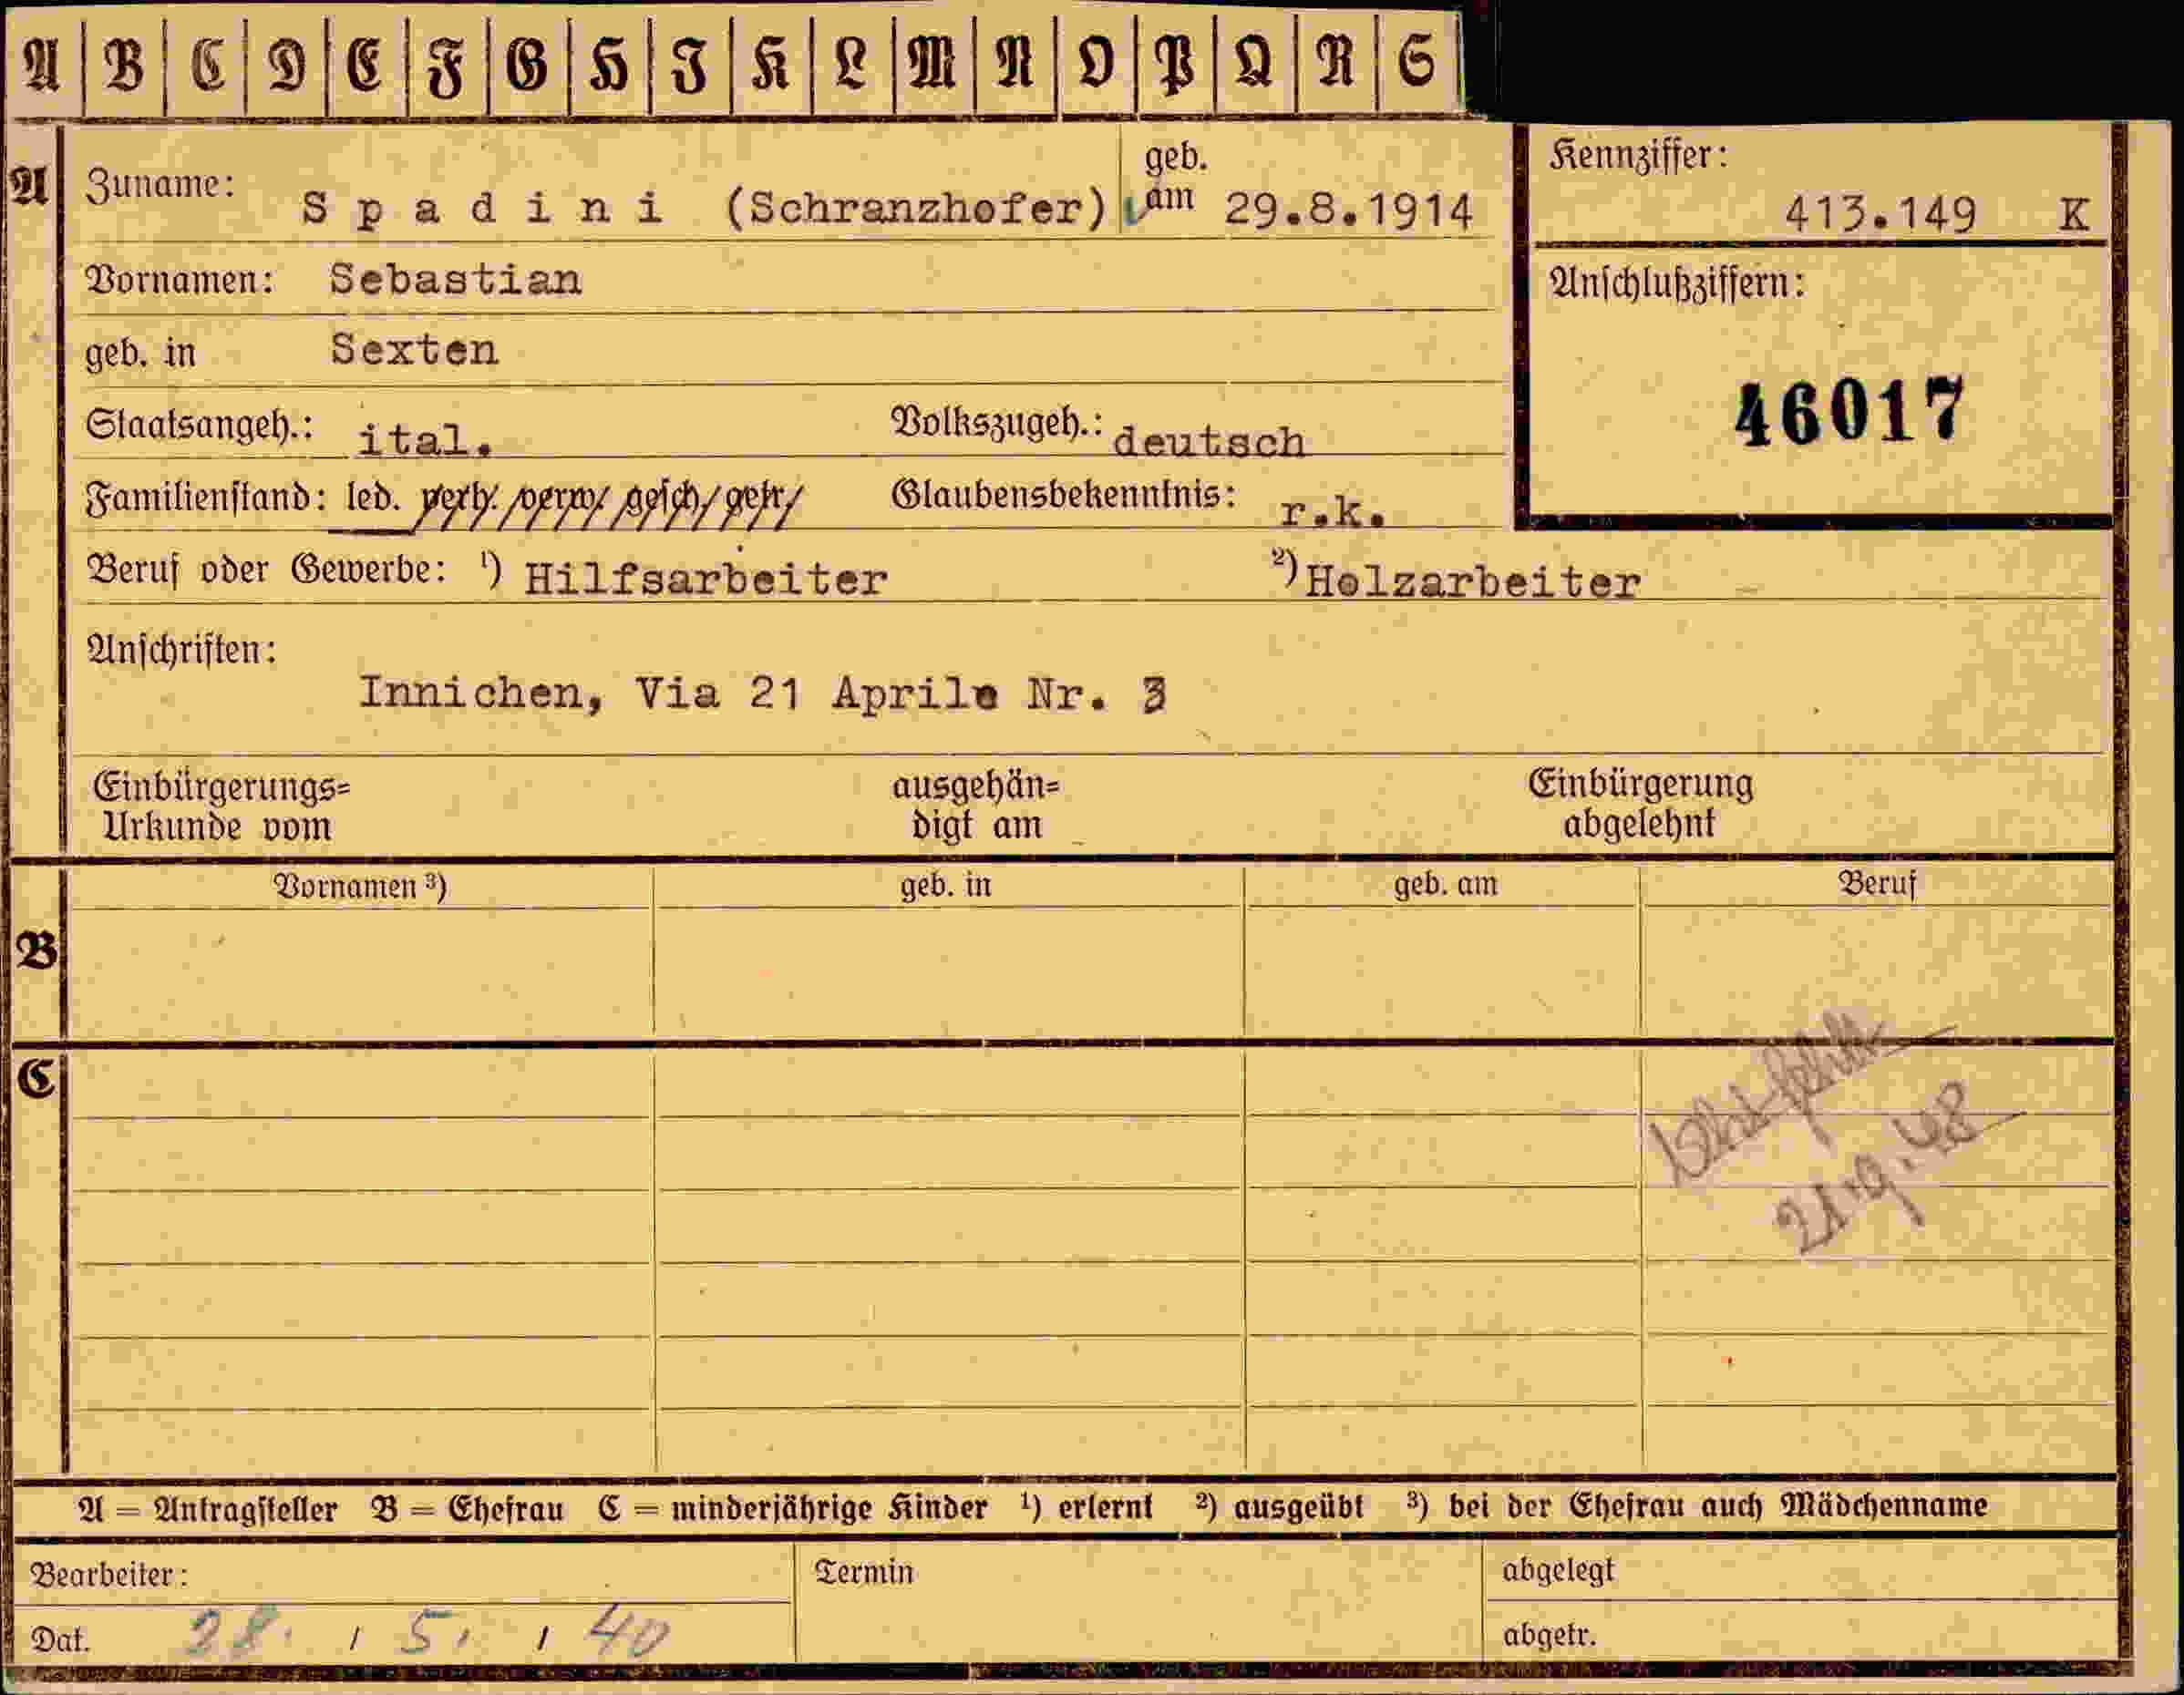 A B C D E F G H I K L M N O P Q R S
A
Zuname: Spadini (Schranzhofer) geb. am 29.8.1914
Kennziffer:
413.149 K
Vornamen: Sebastian
Anschlußziffern:
geb. in Sexten
46017
Staatsangeh.: ital. Volkszugeh.: deutsch
Familienstand: led. verh. verw. gesch. getr. Glaubensbekenntnis: r.k.
Beruf oder Gewerbe: ¹) Hilfsarbeiter ²) Holzarbeiter
Anschriften:
Innichen, Via 21 Aprile Nr. 3
Einbürgerungs= ausgehän= Einbürgerung
Urkunde vom digt am abgelehnt
Vornamen ³) geb. in geb. am Beruf
B
C
fehlt
21.9.48
A = Antragsteller B = Ehefrau C = minderjährige Kinder ¹) erlernt ²) ausgeübt ³) bei der Ehefrau auch Mädchenname
Bearbeiter: Termin abgelegt
Dat. 28. / 5. / 40 abgetr.